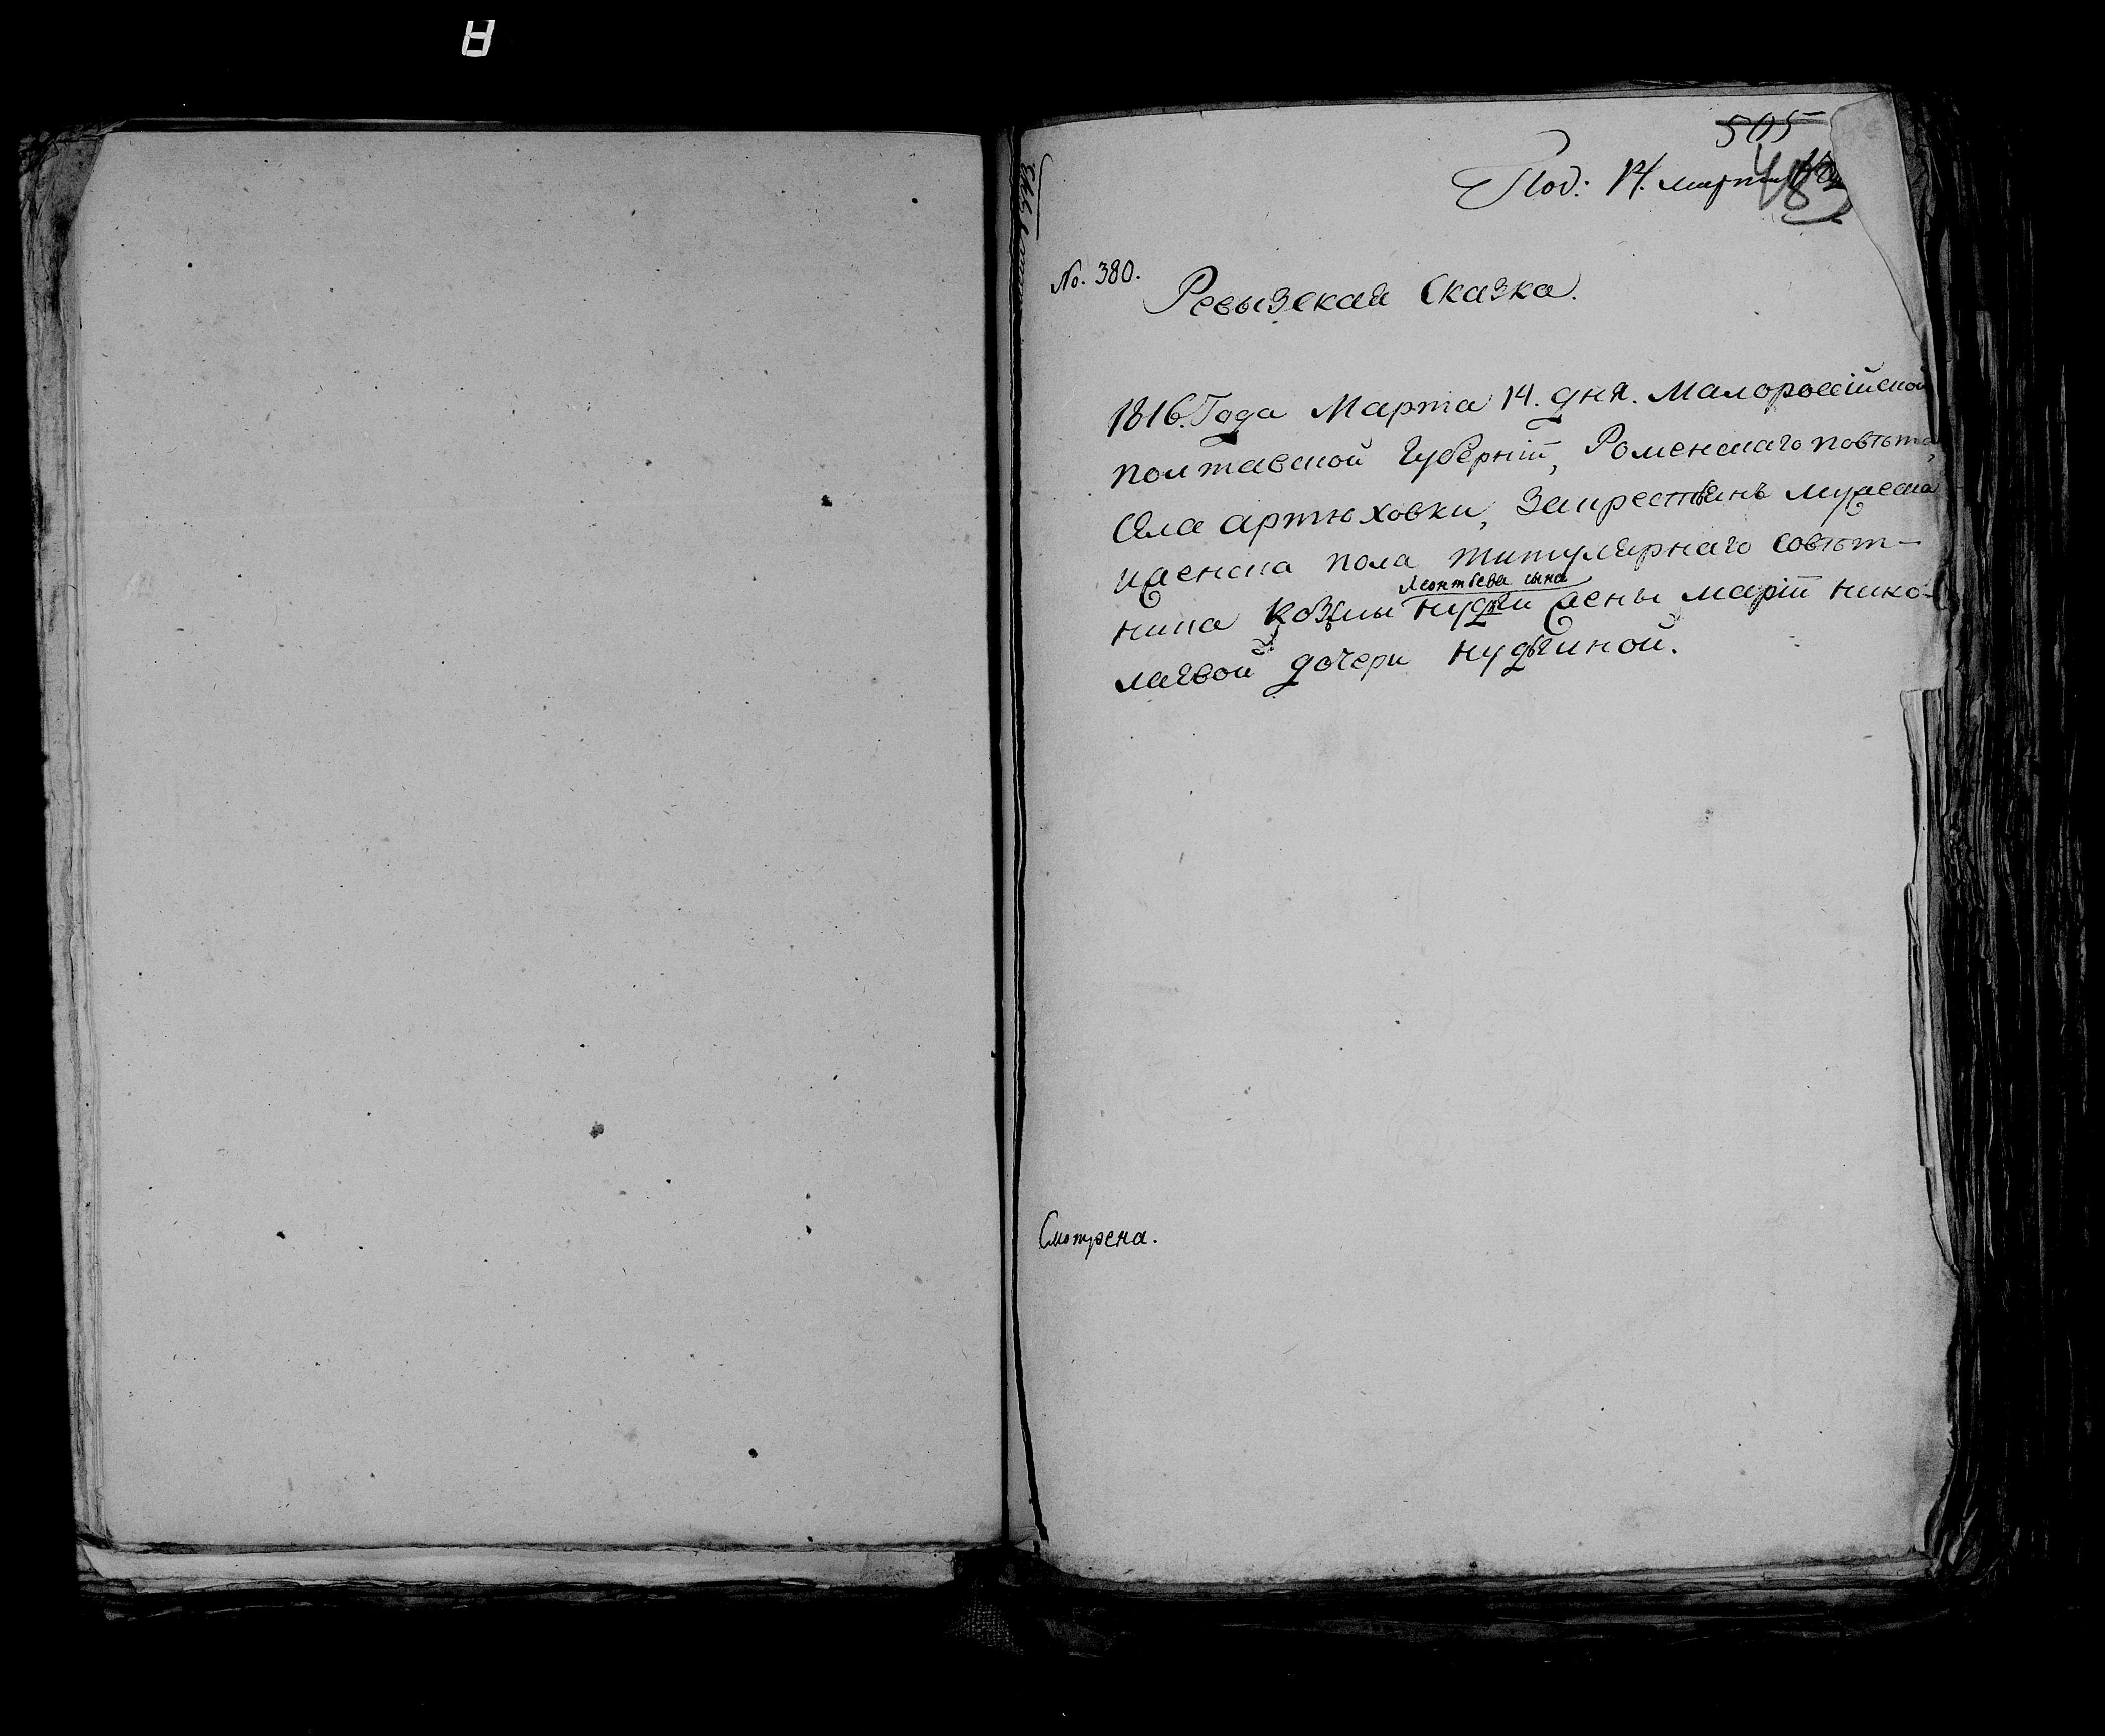 505
Под: 14. марта
483
No. 380.
Ревызская Сказка.
1816. Года Марта 14. дня. Малороссійской
полтавской Губерніи, Роменскаго повѣта,
Села артюховки, Закрестьянъ мужеска
иженска пола титулярнаго совѣт-
Леонтьева сына
ника Козмы нудги жены маріи нико-
лаевой дочери нудгиной.
Смотрена.